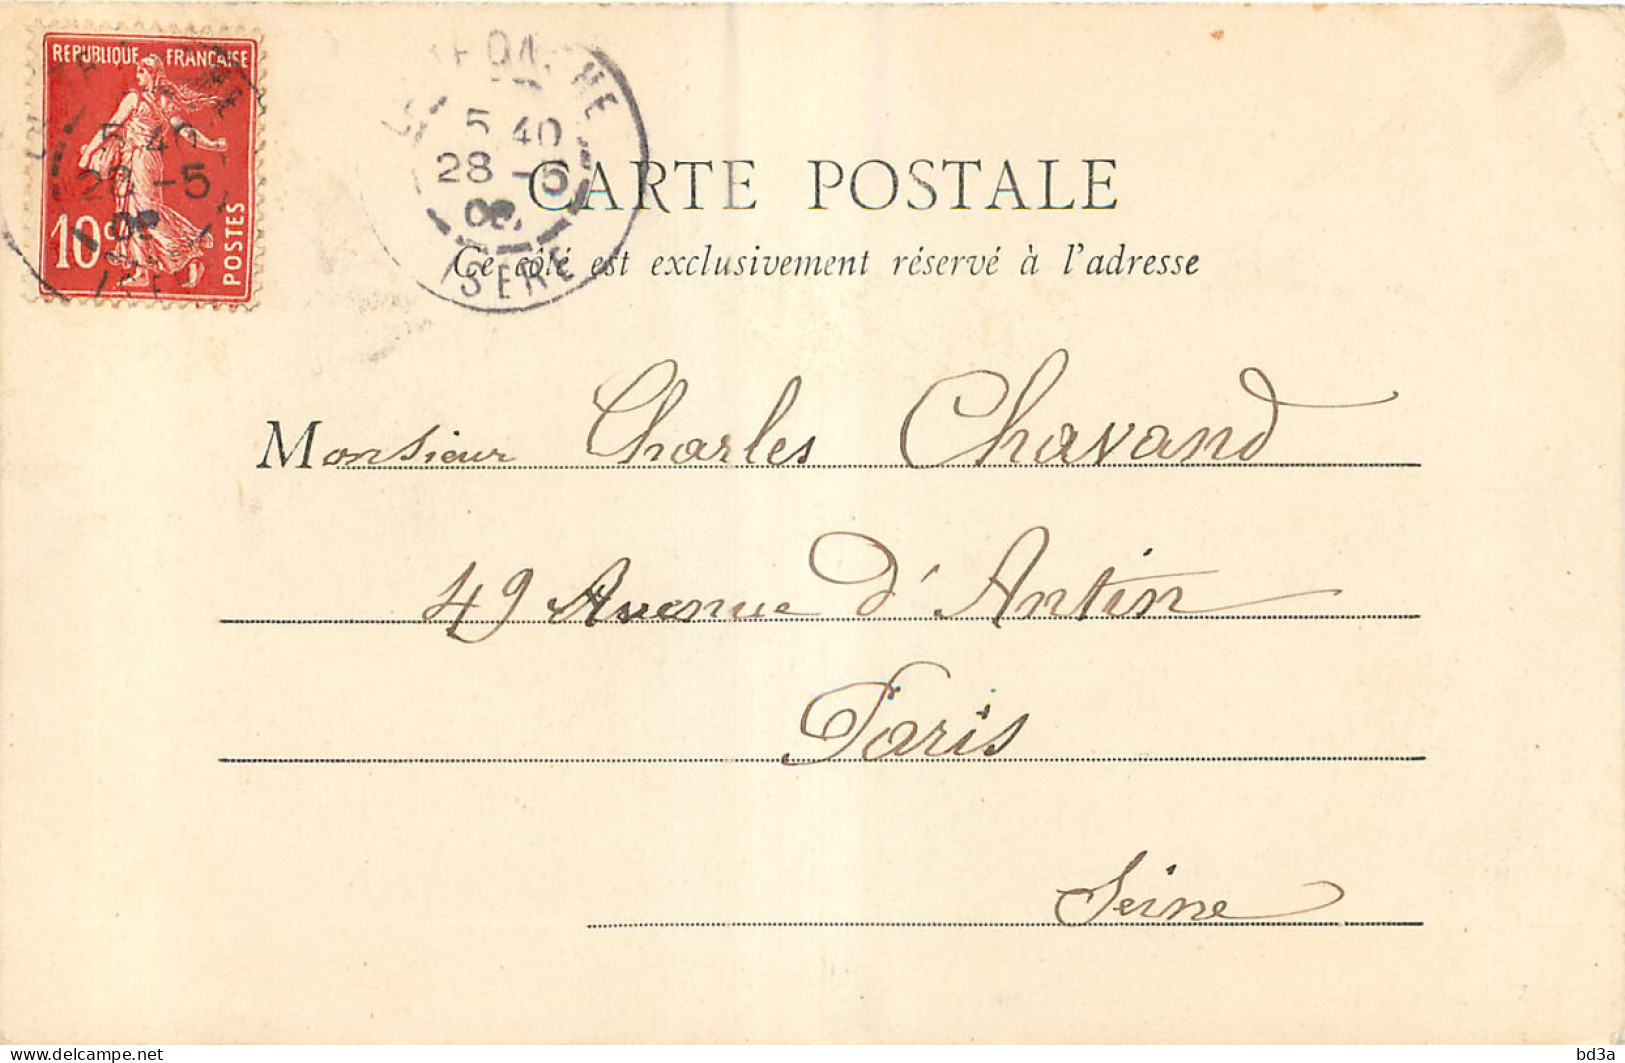 REPUBLIQUE FRANÇAISE
10c
POSTES
5 40
28 -5
ISERE
5 40
-5
CARTE POSTALE
Ce côté est exclusivement réservé à l'adresse
Monsieur Charles Chavand
49 Avenue d'Antin
Paris
Seine
delcampe.net
bd3a